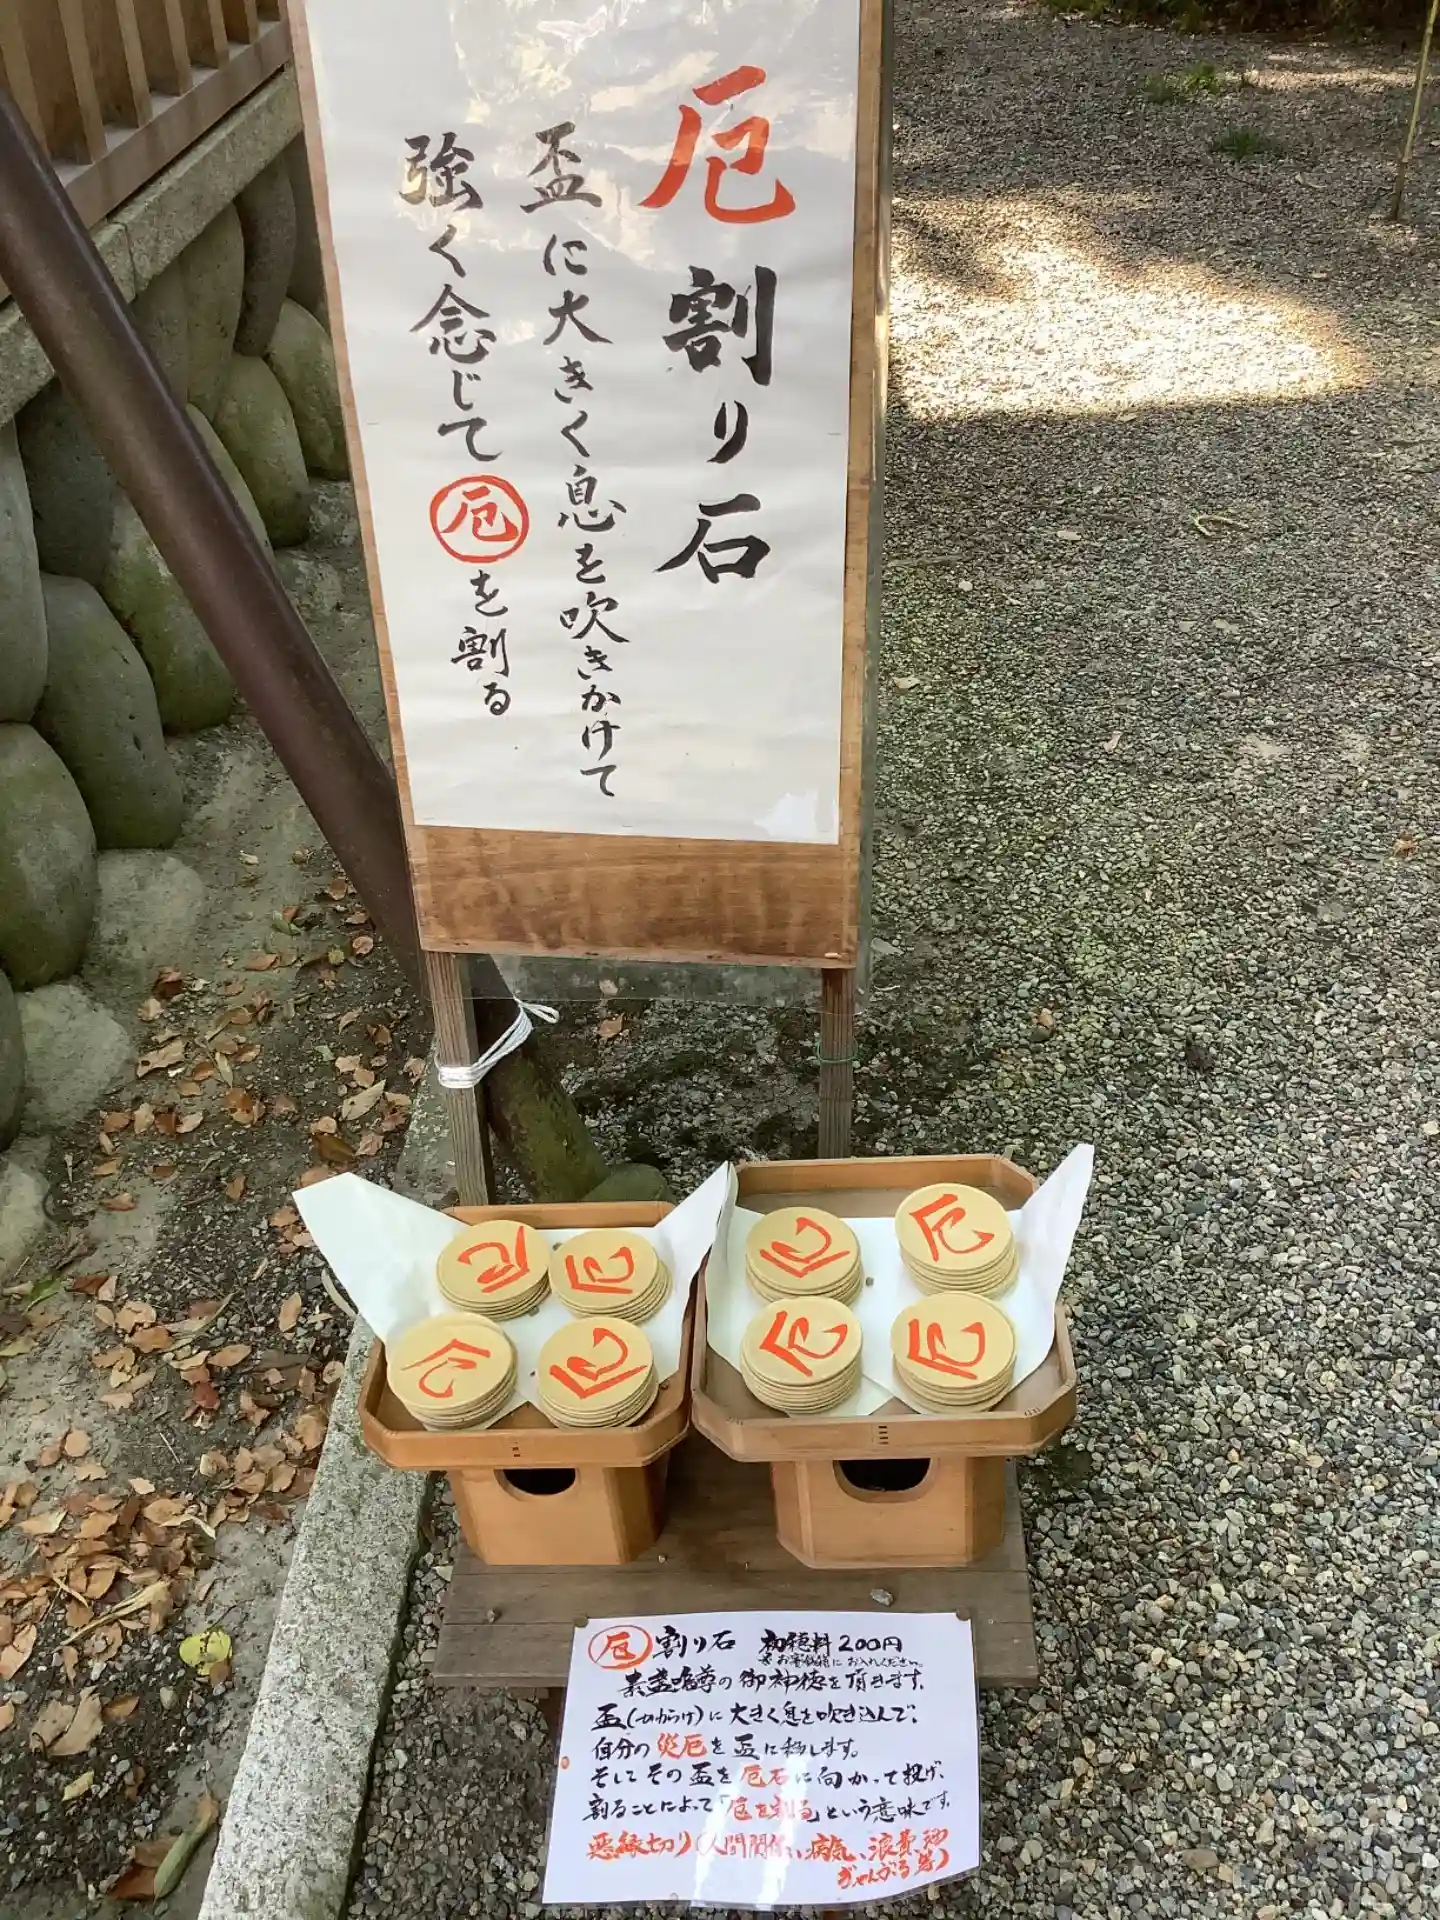 厄割り石
盃に大きく息を吹きかけて
強く念じて厄を割る
厄
厄
厄
厄
厄
厄
厄
厄
厄割り石 初穂料200円
※お賽銭箱にお入れください。
素盞嗚尊の御神徳を頂きます。
盃(かわらけ)に大きく息を吹き込んで、
自分の災厄を盃に移します。
そしてその盃を厄石に向かって投げ、
割ることによって「厄を割る」という意味です。
悪縁切り(人間関係、病気、浪費
ぎゃんぶる等)